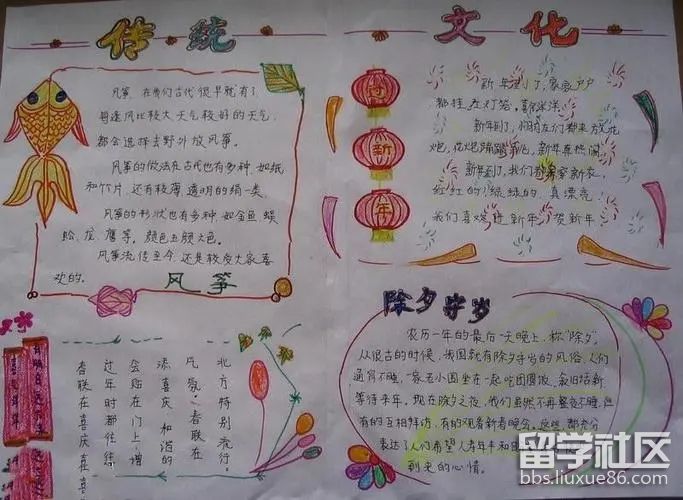 传统
文化
风筝,在我们古代很早就有了
每逢风比较大天气较好的天气,
都会选择去野外放风筝。
风筝的做法在古代也有多种,如纸
和竹片,还有较薄透明的绢一类。
风筝的形状也有多种,如金鱼、蜈
蚣、龙、鹰等,颜色五颜六色。
风筝流传至今,还是较受大家喜
欢的。
风筝
贺
新
年
新年到了,家家户户
都挂起灯笼,喜气洋洋
新年到了,们都来放花
炮,花炮,新年真热闹
新年到,我们穿新衣
红红的!绿绿的,真漂亮
我们喜欢新年,贺新年
除夕守岁
农历一年的最后一天晚上,称“除夕”。
从很古的时候,我国就有除夕守岁的风俗,人们
通宵不睡,一家老小围坐在一起吃团圆饭,叙旧话新,
等待来年,现在除夕之夜,我们虽然不再整夜不睡,但
有的互相拜访,有的观看新春晚会。这些,都充分
表达了人们希望人寿年丰和
到来的心情。
北方特别流行。
气氛。春联在
添喜庆和谐的
会贴在门上增
过年时都往往
春联在喜庆在喜
留学社区
bbs.liuxue86.com